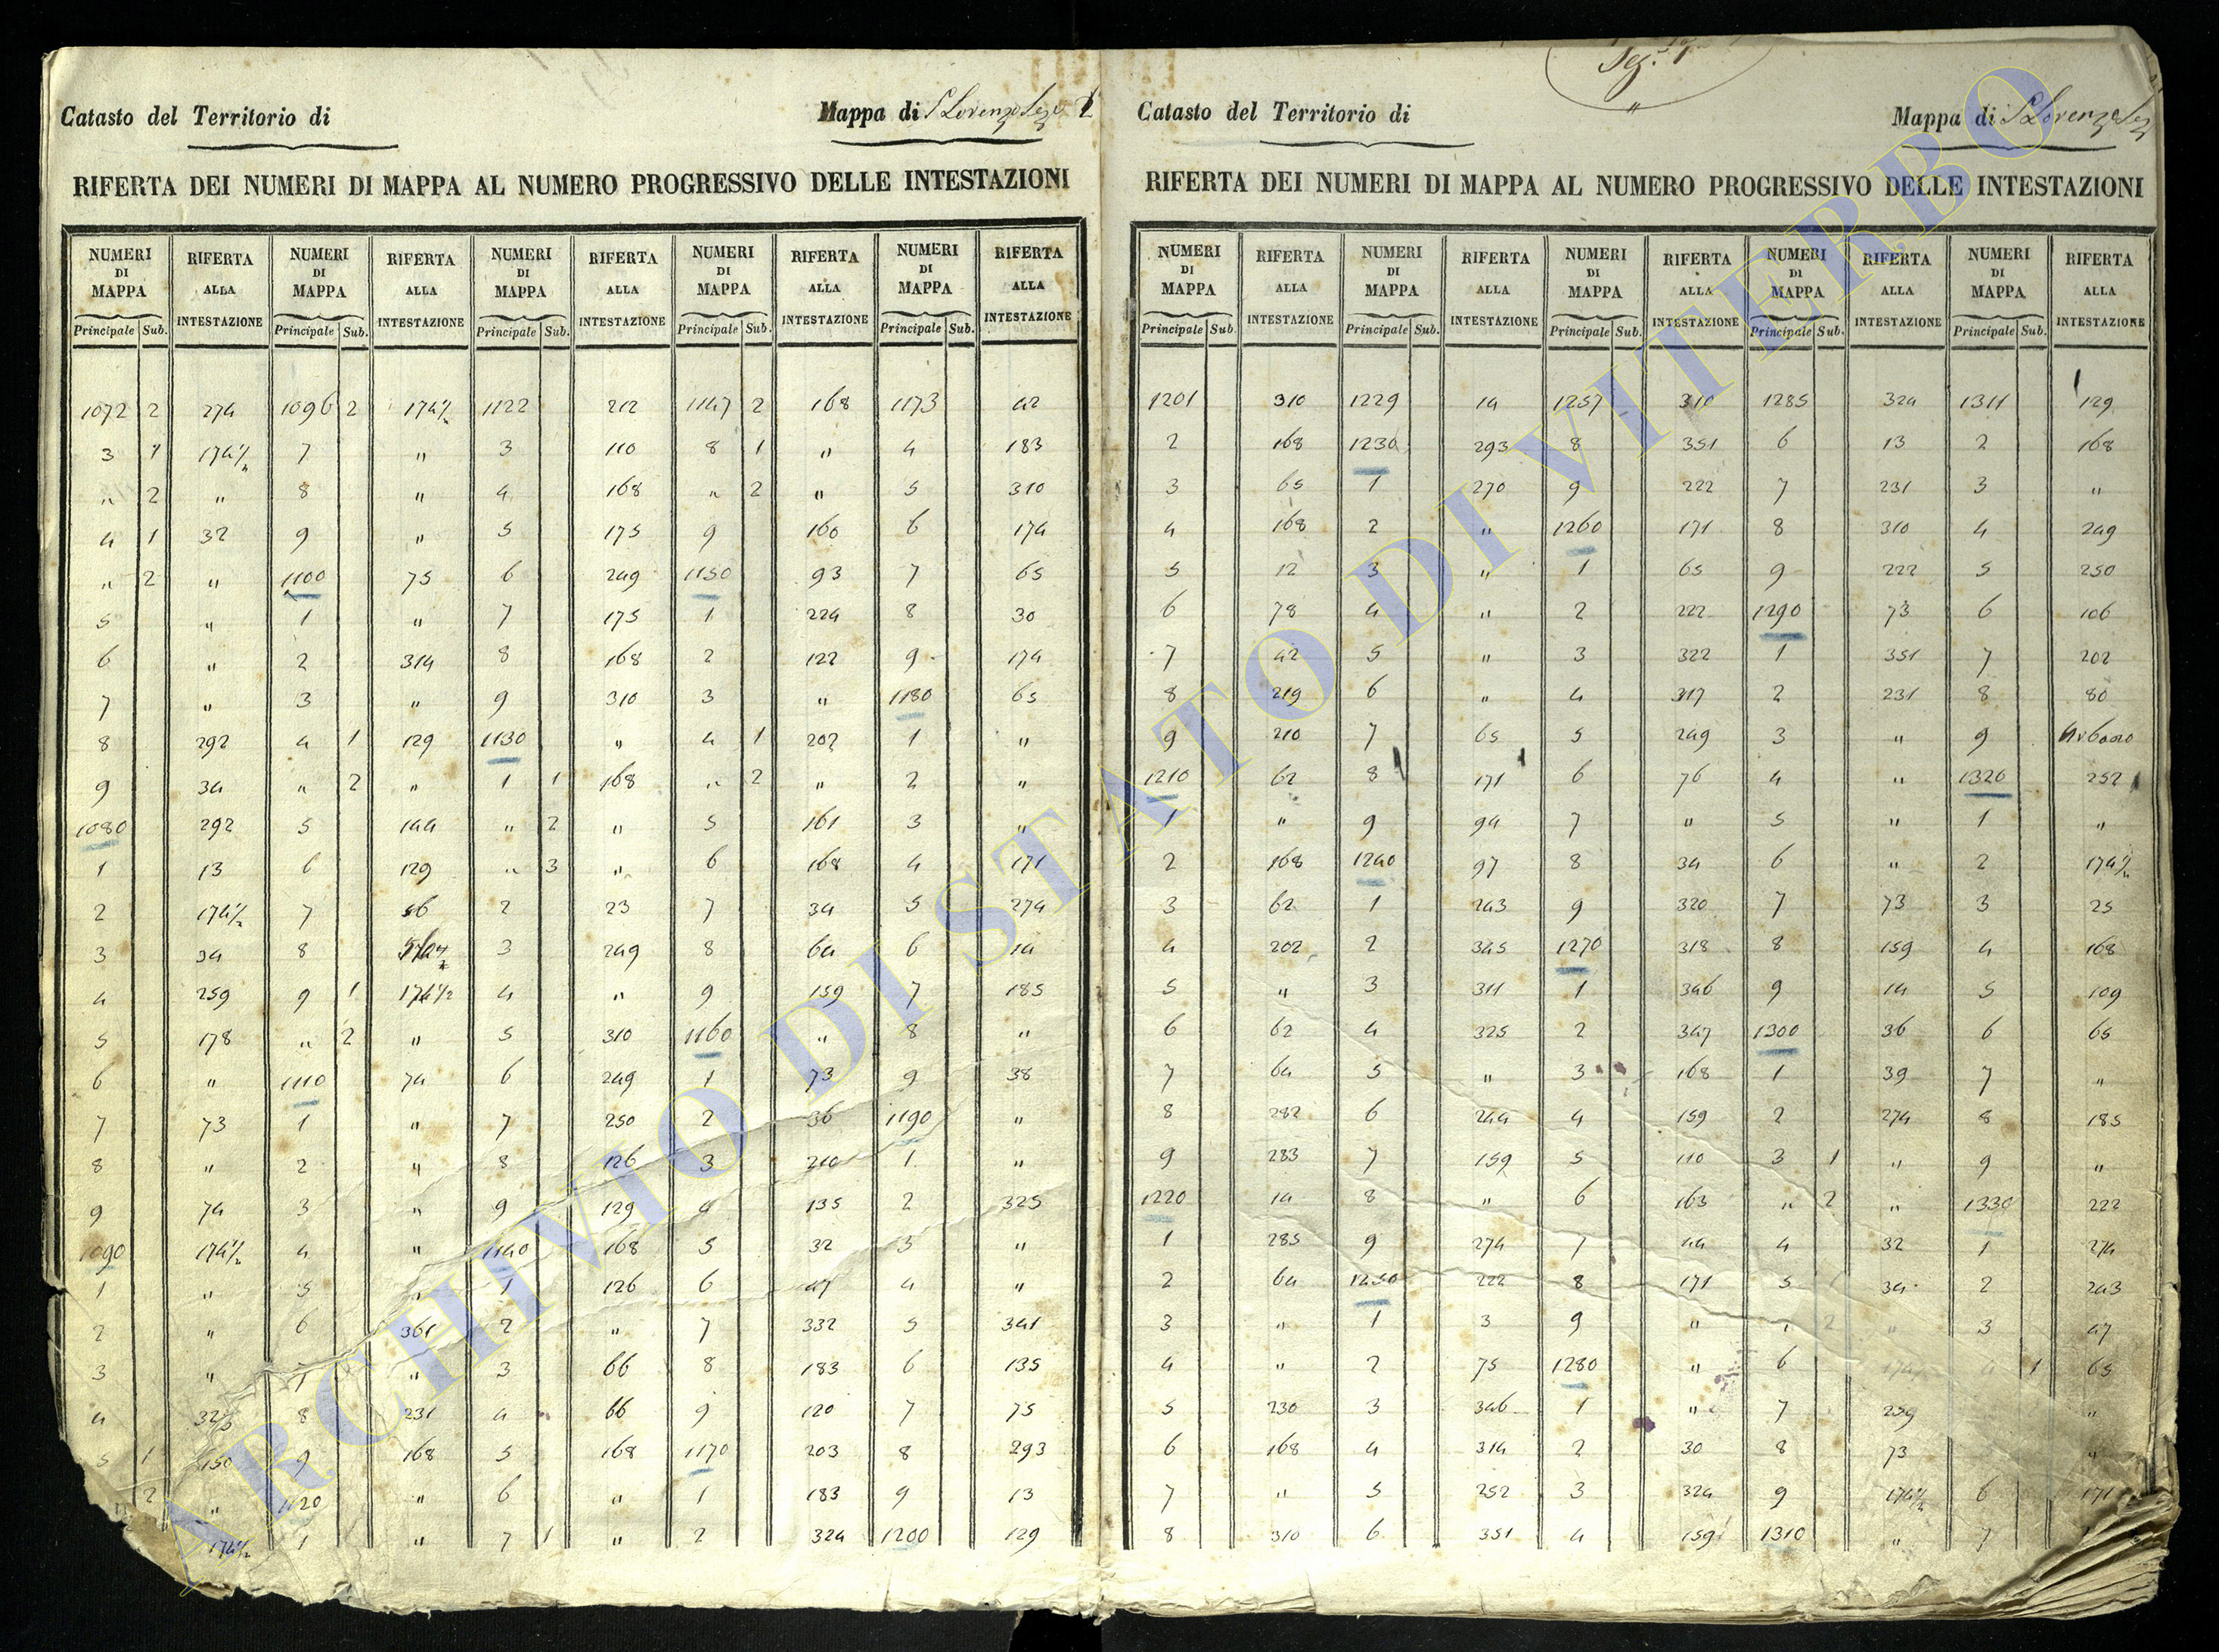 Sez. 1ª
Catasto del Territorio di Mappa di S Lorenzo Sez
Catasto del Territorio di Mappa di S Lorenzo Sez
RIFERTA DEI NUMERI DI MAPPA AL NUMERO PROGRESSIVO DELLE INTESTAZIONI
RIFERTA DEI NUMERI DI MAPPA AL NUMERO PROGRESSIVO DELLE INTESTAZIONI
NUMERI DI MAPPA RIFERTA ALLA INTESTAZIONE NUMERI DI MAPPA RIFERTA ALLA INTESTAZIONE NUMERI DI MAPPA RIFERTA ALLA INTESTAZIONE NUMERI DI MAPPA RIFERTA ALLA INTESTAZIONE NUMERI DI MAPPA RIFERTA ALLA INTESTAZIONE
Principale Sub. Principale Sub. Principale Sub. Principale Sub. Principale Sub.
1072 2 274 1096 2 174½ 1122 212 1147 2 168 1173 42
3 1 174½ 7 " 3 110 8 1 " 4 183
" 2 " 8 " 4 168 " 2 " 5 310
4 1 32 9 " 5 175 9 160 6 174
" 2 " 1100 75 6 249 1150 93 7 65
5 " 1 " 7 175 1 224 8 30
6 " 2 314 8 168 2 122 9 174
7 " 3 " 9 310 3 " 1180 65
8 292 4 1 129 1130 " 4 1 202 1 "
9 34 " 2 " 1 1 168 " 2 " 2 "
1080 292 5 144 " 2 " 5 161 3 "
1 13 6 129 " 3 " 6 168 4 171
2 174½ 7 56 2 23 7 34 5 274
3 34 8 3 249 8 64 6 14
4 259 9 1 174½ 4 " 9 159 7 185
5 178 " 2 " 5 310 1160 " 8 "
6 " 1110 74 6 249 1 73 9 38
7 73 1 " 7 250 2 36 1190 "
8 " 2 " 8 126 3 210 1 "
9 74 3 " 9 129 4 135 2 325
1090 174½ 4 " 1140 168 5 32 3 "
1 " 5 " 1 126 6 47 4 "
2 " 6 361 2 " 7 332 5 341
3 " 7 " 3 66 8 183 6 135
4 8 231 4 66 9 120 7 75
5 1 150 9 168 5 168 1170 203 8 293
" 2 " 1120 " 6 " 1 183 9 13
174½ 1 " 7 1 " 2 324 1200 129
NUMERI DI MAPPA RIFERTA ALLA INTESTAZIONE NUMERI DI MAPPA RIFERTA ALLA INTESTAZIONE NUMERI DI MAPPA RIFERTA ALLA INTESTAZIONE NUMERI DI MAPPA RIFERTA ALLA INTESTAZIONE NUMERI DI MAPPA RIFERTA ALLA INTESTAZIONE
Principale Sub. Principale Sub. Principale Sub. Principale Sub. Principale Sub.
1201 310 1229 14 1257 310 1285 324 1311 129
2 168 1230 293 8 351 6 13 2 168
3 65 1 270 9 222 7 231 3 "
4 168 2 " 1260 171 8 310 4 249
5 12 3 " 1 65 9 222 5 250
6 78 4 " 2 222 1290 73 6 106
7 42 5 " 3 322 1 351 7 202
8 219 6 " 4 317 2 231 8 80
9 210 7 65 5 249 3 " 9
1210 62 8 171 6 76 4 " 1320 252
1 " 9 94 7 " 5 " 1 "
2 168 1240 97 8 34 6 " 2 174½
3 62 1 243 9 320 7 73 3 25
4 202 2 345 1270 318 8 159 4 168
5 " 3 311 1 346 9 14 5 109
6 62 4 325 2 347 1300 36 6 65
7 64 5 " 3 168 1 39 7 "
8 282 6 244 4 159 2 274 8 185
9 283 7 159 5 110 3 1 " 9 "
1220 14 8 " 6 163 " 2 " 1330 222
1 285 9 274 7 44 4 32 1 274
2 64 1250 222 8 171 5 1 34 2 243
3 " 1 3 9 " " 2 " 3 47
4 " 2 75 1280 " 6 174 4 1 65
5 230 3 346 1 " 7 259 "
6 168 4 314 2 30 8 73 "
7 " 5 252 3 324 9 174½ 6 171
8 310 6 351 4 159 1310 " 7
ARCHIVIO DI STATO DI VITERBO